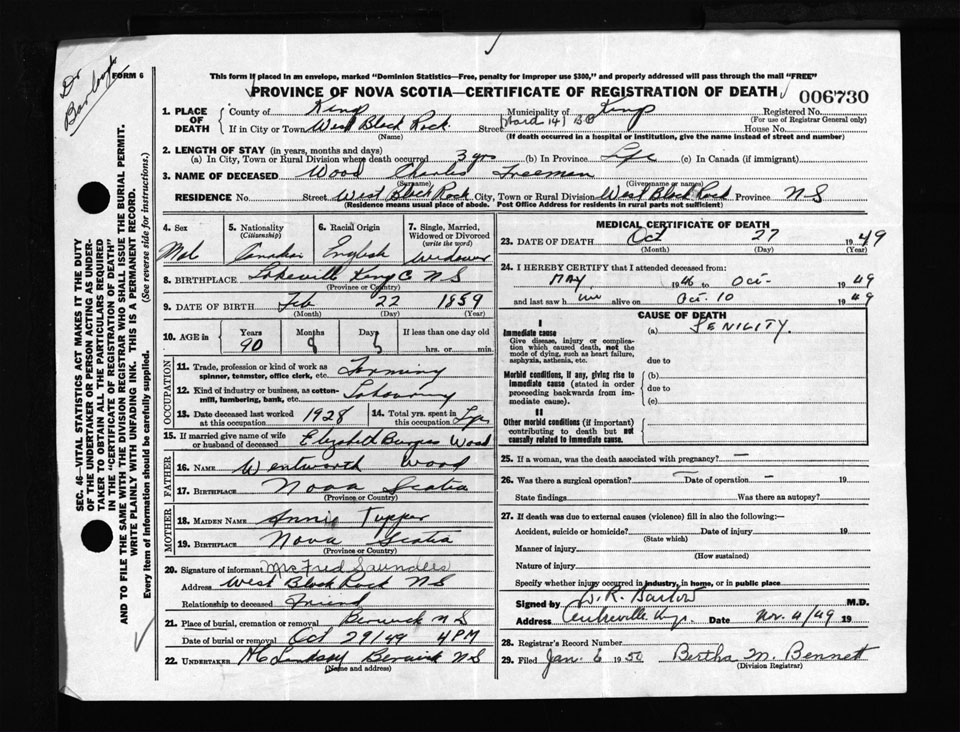 Dr Barlow
FORM 6
This form if placed in an envelope, marked "Dominion Statistics—Free, penalty for improper use $300," and properly addressed will pass through the mail "FREE"
PROVINCE OF NOVA SCOTIA—CERTIFICATE OF REGISTRATION OF DEATH
006730
1. PLACE OF DEATH County of Kings Municipality of Kings Registered No.
(For use of Registrar General only)
If in City or Town West Black Rock Street (Ward 14) House No.
(Name) (If death occurred in a hospital or institution, give the name instead of street and number)
2. LENGTH OF STAY (in years, months and days)
(a) In City, Town or Rural Division where death occurred 3 yrs (b) In Province Life (c) In Canada (if immigrant)
3. NAME OF DECEASED Wood Charles Freeman
(Surname) (Given name or names)
RESIDENCE No. Street West Black Rock City, Town or Rural Division West Black Rock Province N S
(Residence means usual place of abode. Post Office Address for residents in rural parts not sufficient)
4. Sex 5. Nationality (Citizenship) 6. Racial Origin 7. Single, Married, Widowed or Divorced (write the word)
Mal Canadian English Widower
8. BIRTHPLACE Lakeville Kings C N S
(Province or Country)
9. DATE OF BIRTH Feb 22 1859
(Month) (Day) (Year)
10. AGE in Years Months Days If less than one day old
90 8 5 hrs. or min.
OCCUPATION
11. Trade, profession or kind of work as spinner, teamster, office clerk, etc. Farming
12. Kind of industry or business, as cotton-mill, lumbering, bank, etc. Labouring
13. Date deceased last worked at this occupation 1928 14. Total yrs. spent in this occupation Life
15. If married give name of wife or husband of deceased Elizabeth Burgess Wood
FATHER
16. NAME Wentworth Wood
17. BIRTHPLACE Nova Scotia
(Province or Country)
MOTHER
18. MAIDEN NAME Annie Tupper
19. BIRTHPLACE Nova Scotia
(Province or Country)
20. Signature of informant Mrs Fred Saunders
Address West Black Rock N S
Relationship to deceased Friend
21. Place of burial, cremation or removal Berwick N S
Date of burial or removal Oct 29/49 4 PM
22. UNDERTAKER Lindsay Berwick N S
(Name and address)
MEDICAL CERTIFICATE OF DEATH
23. DATE OF DEATH Oct 27 1949
(Month) (Day) (Year)
24. I HEREBY CERTIFY that I attended deceased from:
MAY 1946 to Oct- 1949
and last saw him alive on Oct. 10 1949
CAUSE OF DEATH
I
Immediate cause (a) SENILITY.
Give disease, injury or complication which caused death, not the mode of dying, such as heart failure, asphyxia, asthenia, etc. due to
Morbid conditions, if any, giving rise to immediate cause (stated in order proceeding backwards from immediate cause). (b)
due to
(c)
II
Other morbid conditions (if important) contributing to death but not causally related to immediate cause.
25. If a woman, was the death associated with pregnancy? —
26. Was there a surgical operation? — Date of operation —
State findings Was there an autopsy?
27. If death was due to external causes (violence) fill in also the following:—
Accident, suicide or homicide? Date of injury 19
(State which)
Manner of injury
(How sustained)
Nature of injury
Specify whether injury occurred in industry, in home, or in public place
Signed by M.D.
Address Centreville Date Nov. 4/49 19
28. Registrar's Record Number
29. Filed Jan. 6 1950 Bertha M. Bennett
(Division Registrar)
SEC. 46—VITAL STATISTICS ACT MAKES IT THE DUTY
OF THE UNDERTAKER OR PERSON ACTING AS UNDER-
TAKER TO OBTAIN ALL THE PARTICULARS REQUIRED
IN THE "CERTIFICATE OF REGISTRATION OF DEATH"
AND TO FILE THE SAME WITH THE DIVISION REGISTRAR WHO SHALL ISSUE THE BURIAL PERMIT.
WRITE PLAINLY WITH UNFADING INK. THIS IS A PERMANENT RECORD.
Every item of information should be carefully supplied. (See reverse side for instructions.)